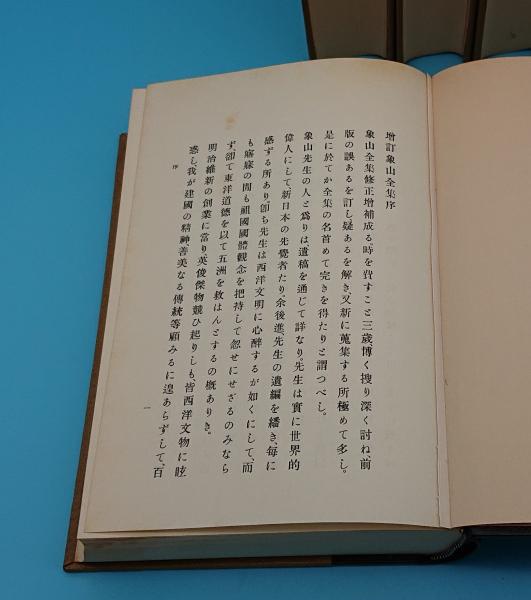 增訂象山全集序
象山全集修正增補成る、時を費すこと三歲博く搜り深く討ね、前
版の誤あるを訂し疑あるを解き、又新に蒐集する所極めて多し。
是に於てか全集の名首めて完きを得たりと謂つべし。
象山先生の人と爲りは、遺稿を通じて詳なり。先生は實に世界的
偉人にして、新日本の先覺者たり、余後進、先生の遺編を繙き、每に
感ずる所あり、卽ち先生は西洋文明に心醉するが如くにして、而
も寤寐の間も祖國國體觀念を把持して忽せにせざるのみなら
ず、卻て東洋道德を以て五洲を救はんとするの槪ありき。
明治維新の創業に當り英俊傑物競ひ起りしも皆西洋文物に眩
惑し、我が建國の精神、善美なる傳統等顧みるに遑あらずして、百
序
一